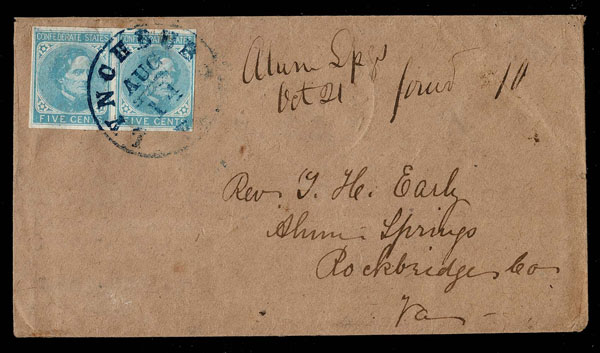 CONFEDERATE STATES
CONFEDERATE STATES
FIVE CENTS
FIVE CENTS
LYNCHBUR
AUG
Alum Spgs
Oct 21
forwd 10
Rev. J. H. Early
Alum Springs
Rockbridge Co
Va